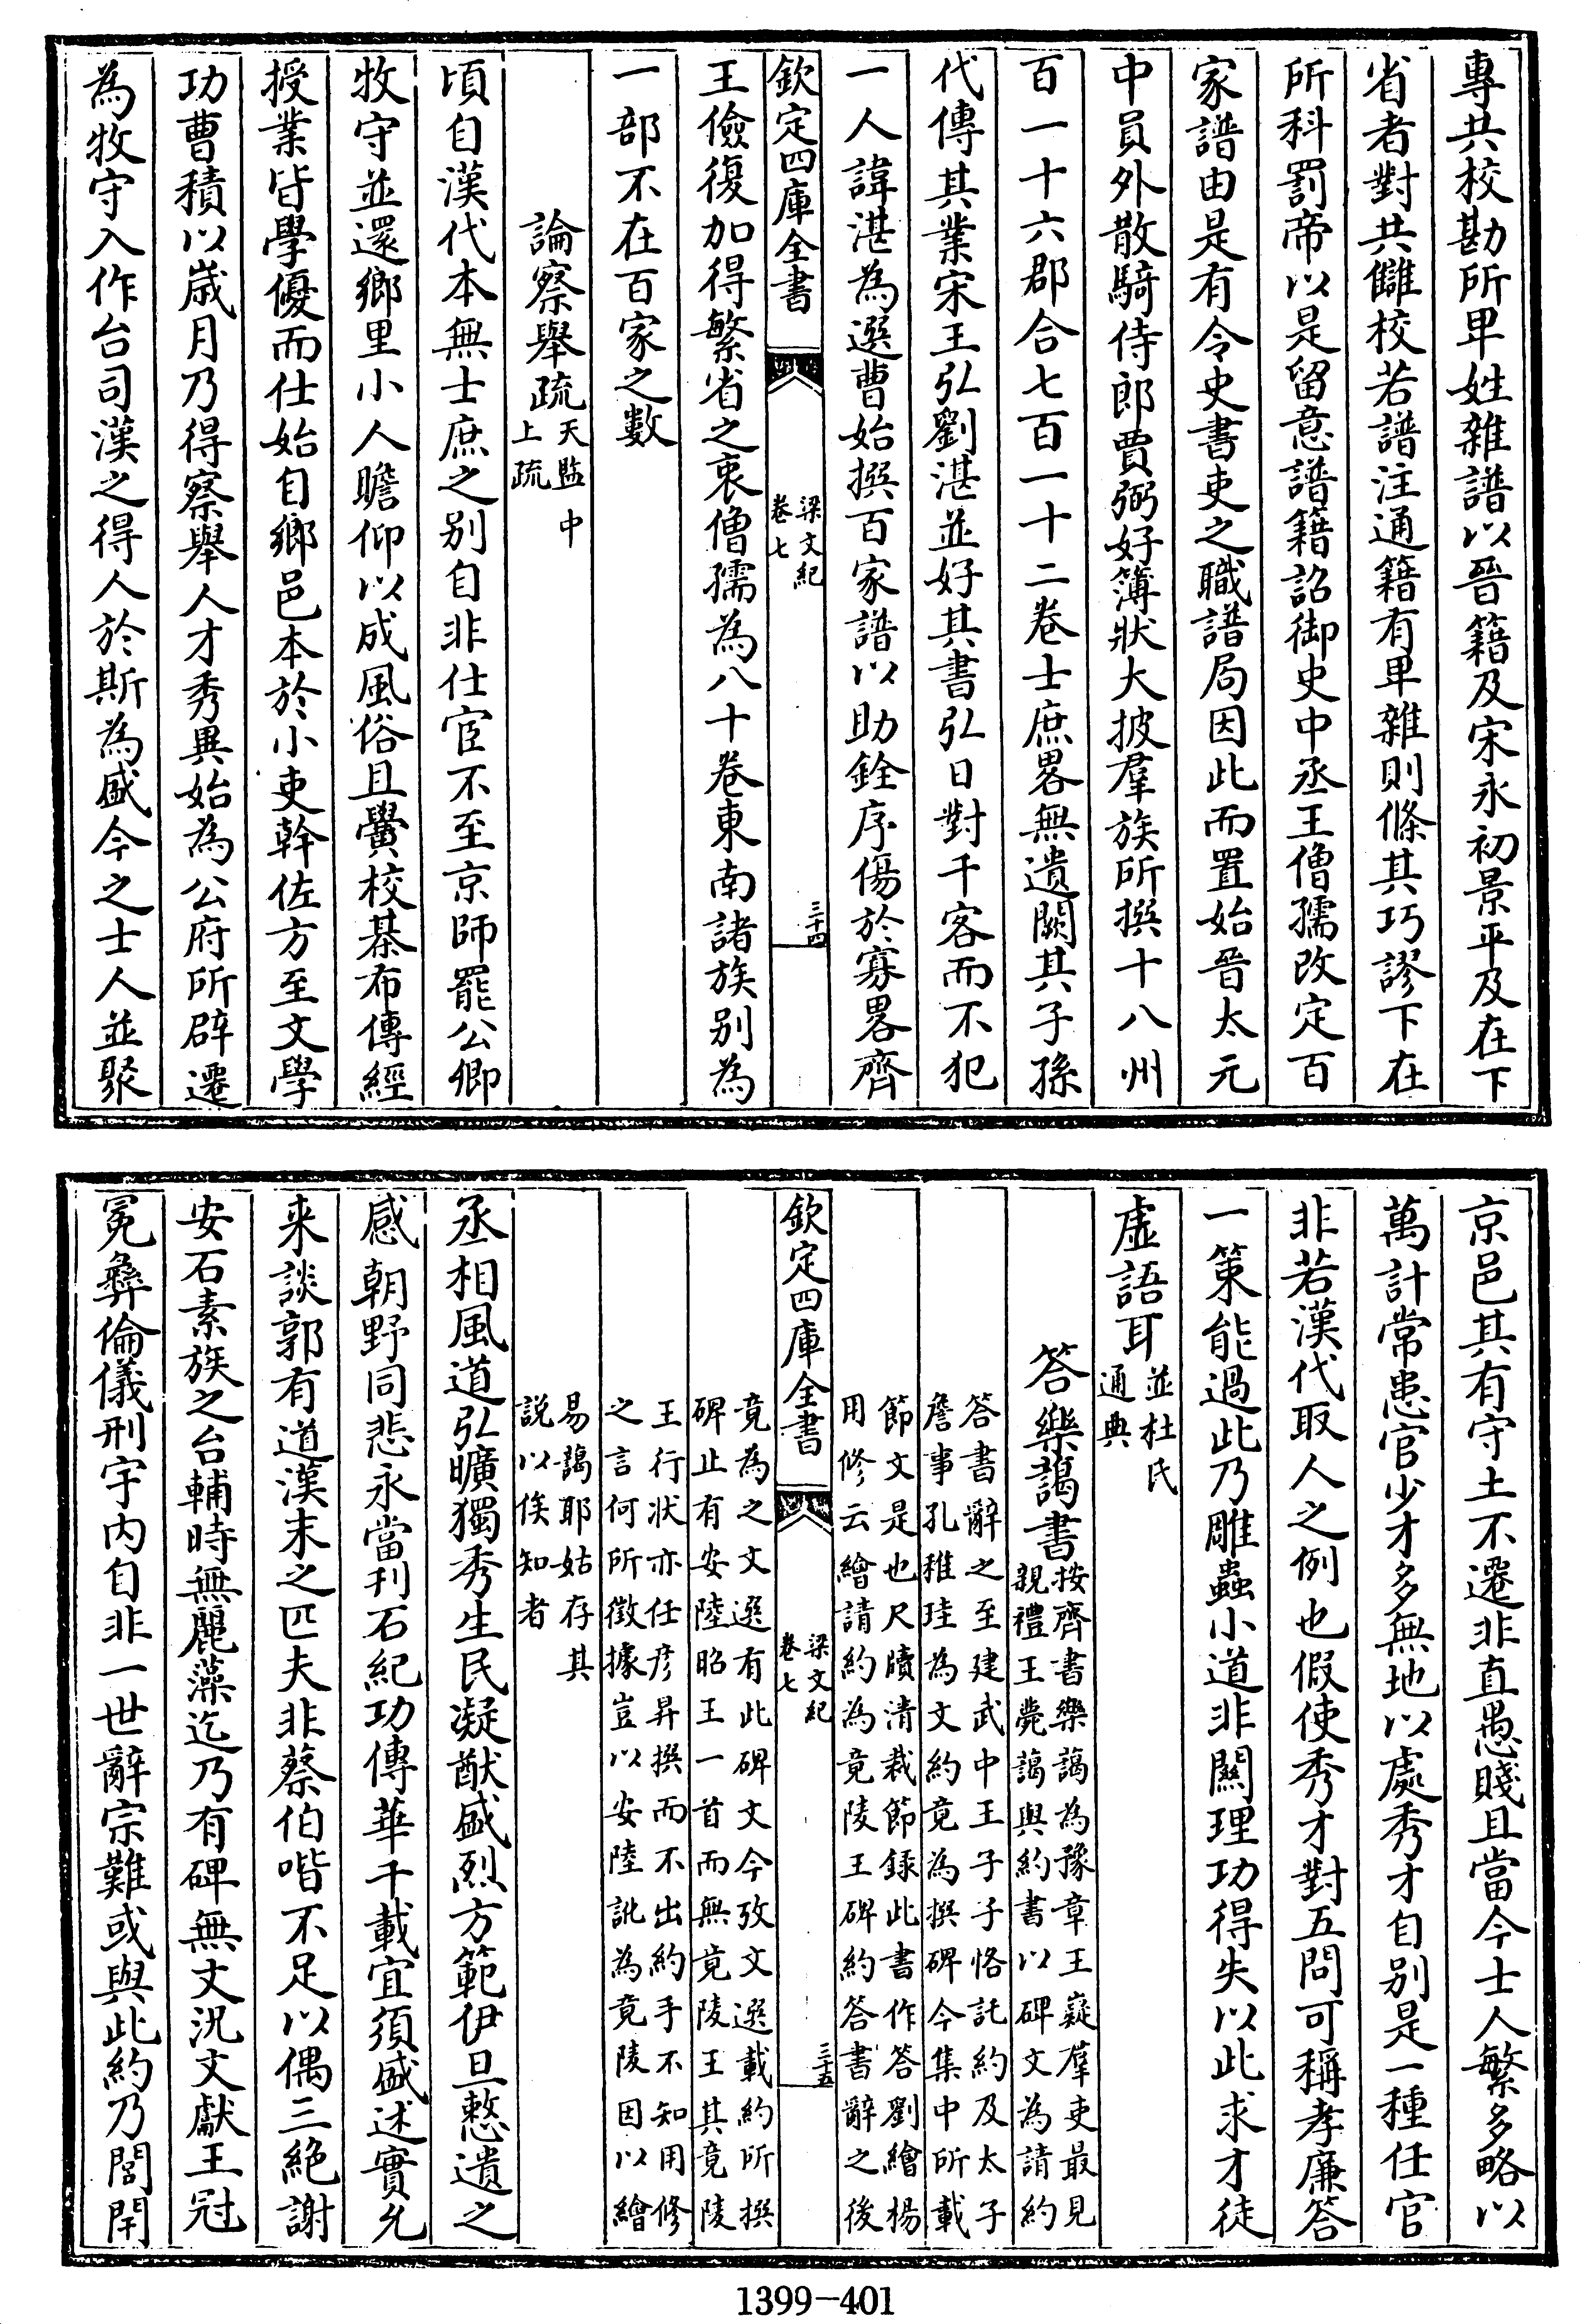 專共校勘所卑姓雜譜以晉籍及宋永初景平及在下
省者對共讎校若譜注通籍有卑雜則條其巧謬下在
所科罰帝以是留意譜籍詔御史中丞王僧孺改定百
家譜由是有令史書吏之職譜局因此而置始晉太元
中員外散騎侍郎賈弼好簿狀大披羣族所撰十八州
百一十六郡合七百一十二卷士庶畧無遺闕其子孫
代傳其業宋王弘劉湛並好其書弘日對千客而不犯
一人諱湛為選曹始撰百家譜以助銓序傷於寡畧齊
欽定四庫全書
梁文紀
卷七
三十四
王儉復加得繁省之衷僧孺為八十卷東南諸族別為
一部不在百家之數
論察舉疏
天監中
上疏
頃自漢代本無士庶之別自非仕宦不至京師罷公卿
牧守並還鄉里小人瞻仰以成風俗且黌校棊布傳經
授業皆學優而仕始自鄉邑本於小吏幹佐方至文學
功曹積以歲月乃得察舉人才秀異始為公府所辟遷
為牧守入作台司漢之得人於斯為盛今之士人並聚
京邑其有守土不遷非直愚賤且當今士人繁多略以
萬計常患官少才多無地以處秀才自別是一種任官
非若漢代取人之例也假使秀才對五問可稱孝廉答
一策能過此乃雕蟲小道非關理功得失以此求才徒
虛語耳
並杜氏
通典
答樂藹書
按齊書樂藹為豫章王嶷羣吏最見
親禮王薨藹與約書以碑文為請約
答書辭之至建武中王子子恪託約及太子
詹事孔稚珪為文約竟為撰碑今集中所載
節文是也尺牘清裁節錄此書作答劉繪楊
用修云繪請約為竟陵王碑約答書辭之後
欽定四庫全書
梁文紀
卷七
三十五
竟為之文選有此碑文今攷文選載約所撰
碑止有安陸昭王一首而無竟陵王其竟陵
王行狀亦任彦昇撰而不出約手不知用修
之言何所徵據豈以安陸訛為竟陵因以繪
易藹耶姑存其
説以俟知者
丞相風道弘曠獨秀生民凝猷盛烈方範伊旦憗遺之
感朝野同悲永當刊石紀功傳華千載宜須盛述實允
来談郭有道漢末之匹夫非蔡伯喈不足以偶三絶謝
安石素族之台輔時無麗藻迄乃有碑無文況文獻王冠
冕彝倫儀刑宇內自非一世辭宗難或與此約乃閭閈
1399-401